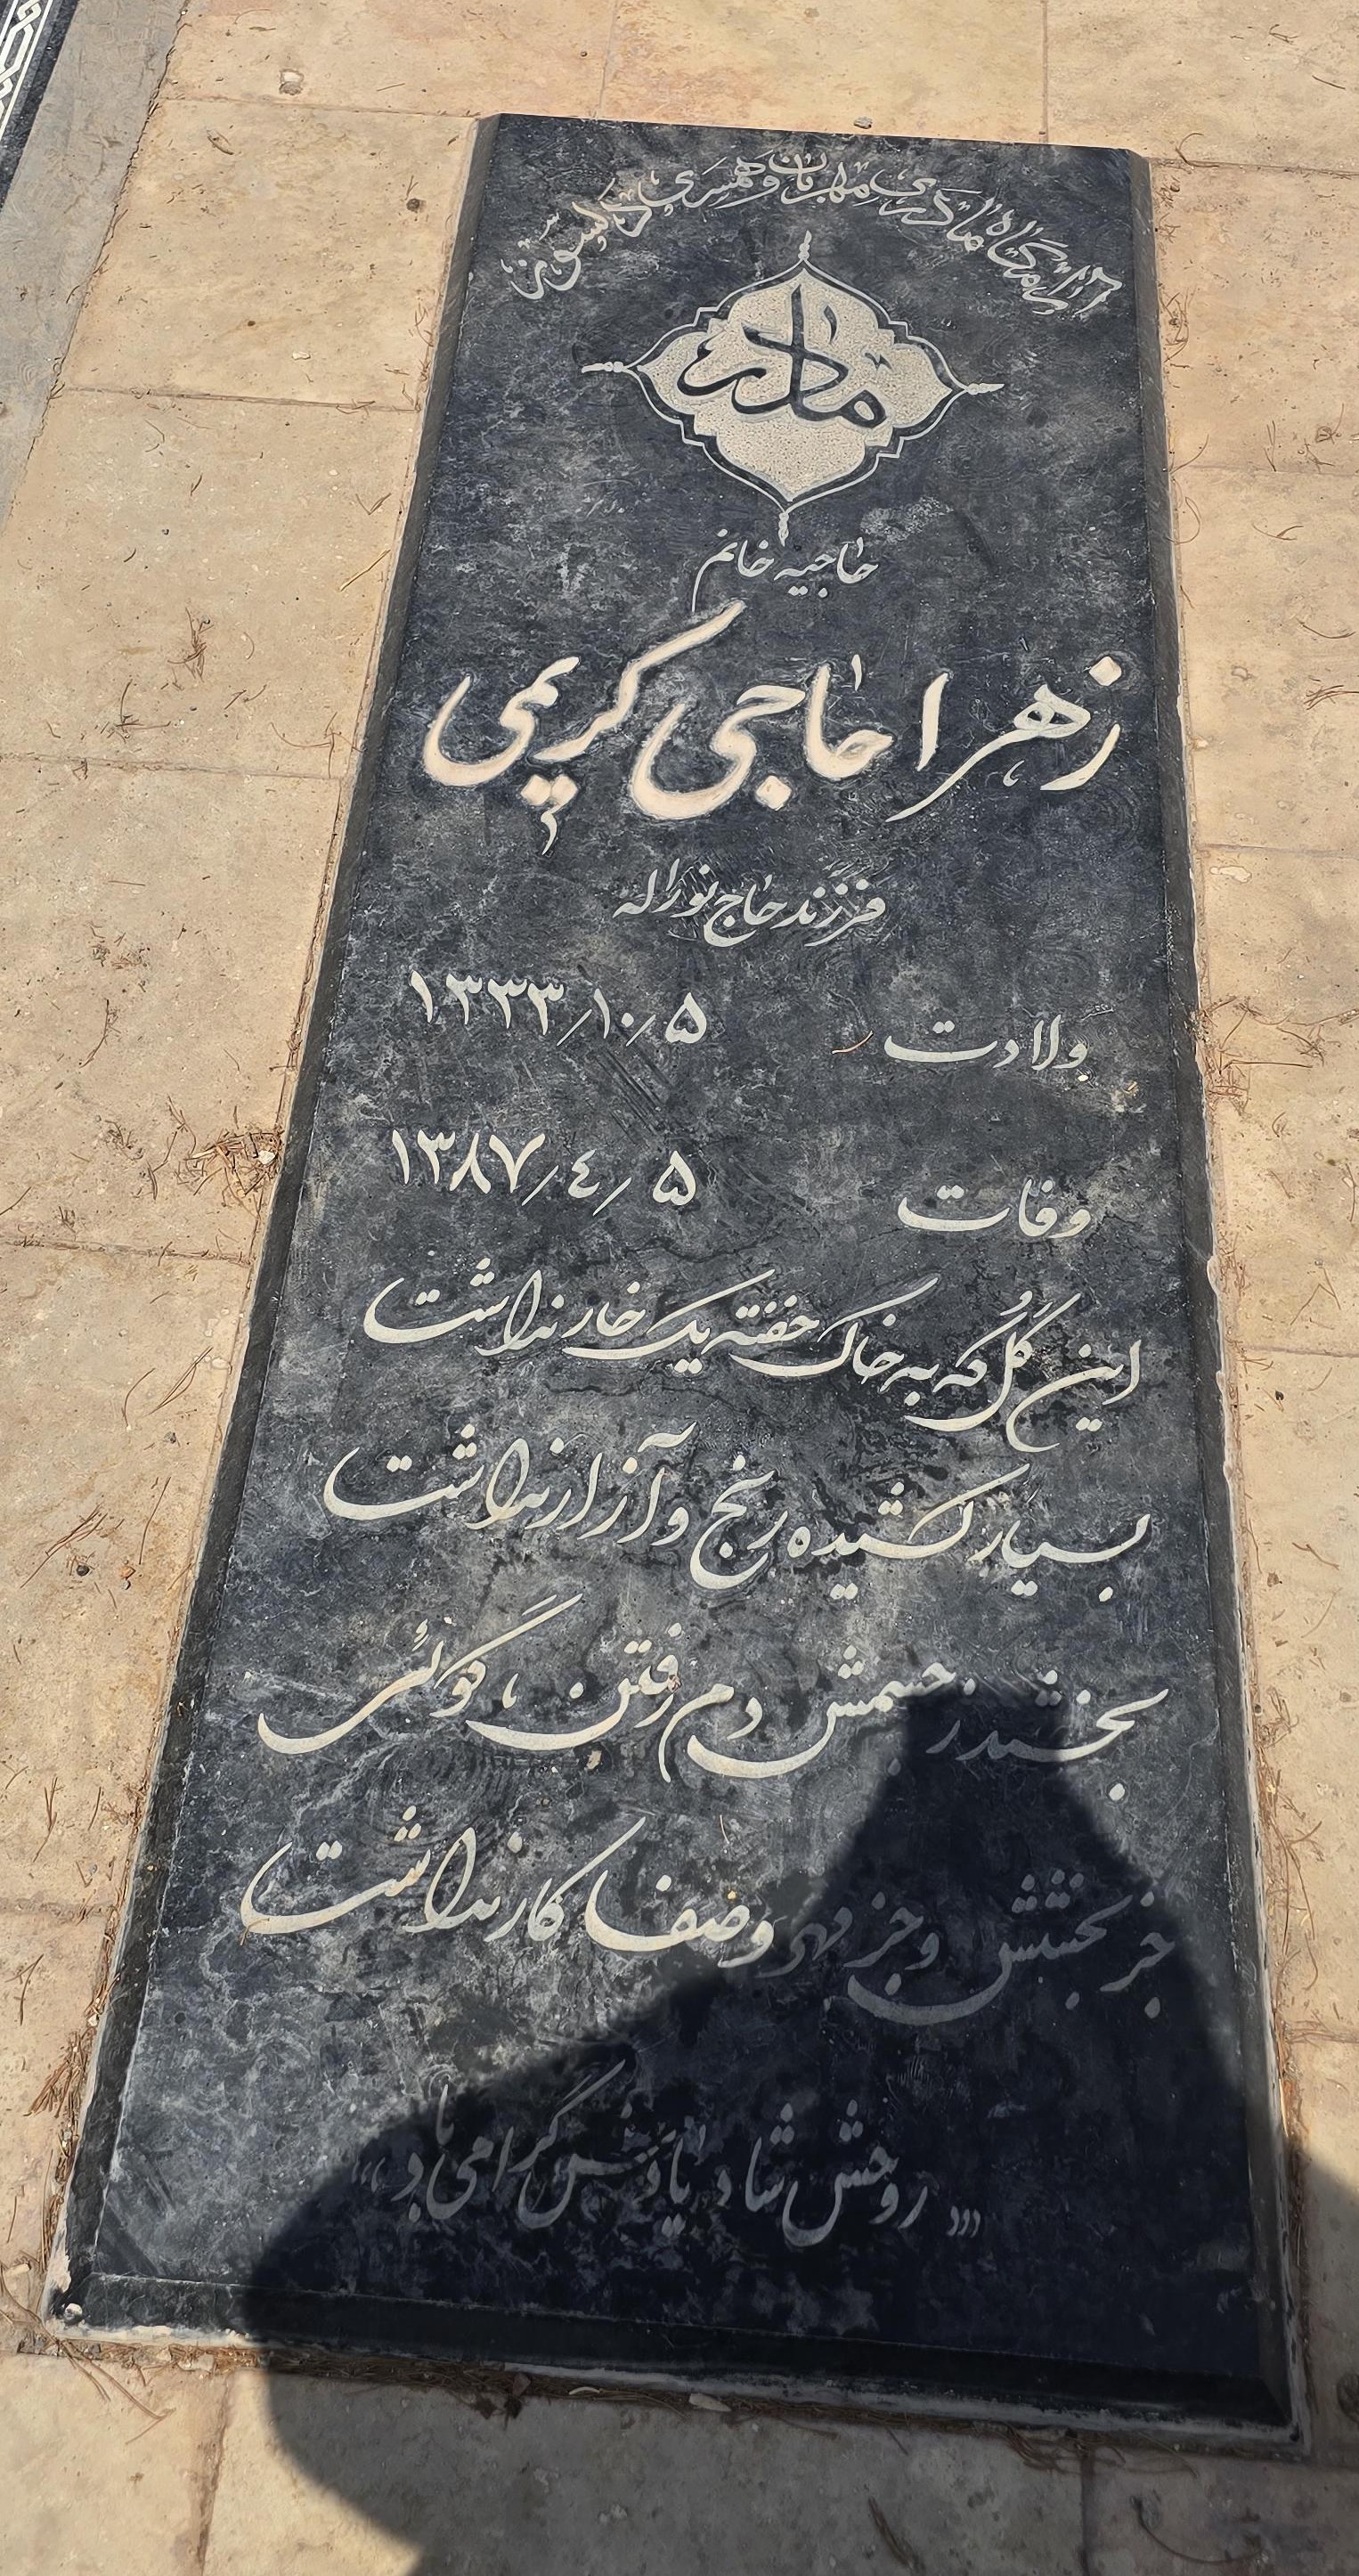 آرامگاه مادری مهربان و همسری دلسوز
مادر
حاجیه خانم
زهرا حاجی کریمی
فرزند حاج نوراله
ولادت ۱۳۳۳/۱۰/۵
وفات ۱۳۸۷/۴/۵
این گل که به خاک خفته یک خار نداشت
بسیار کشیده رنج و آزار نداشت
بخشید ز جسمش دم رفتن، گوئی
جز بخشش و جز مهر و صفا کار نداشت
،،، روحش شاد یادش گرامی باد ،،،